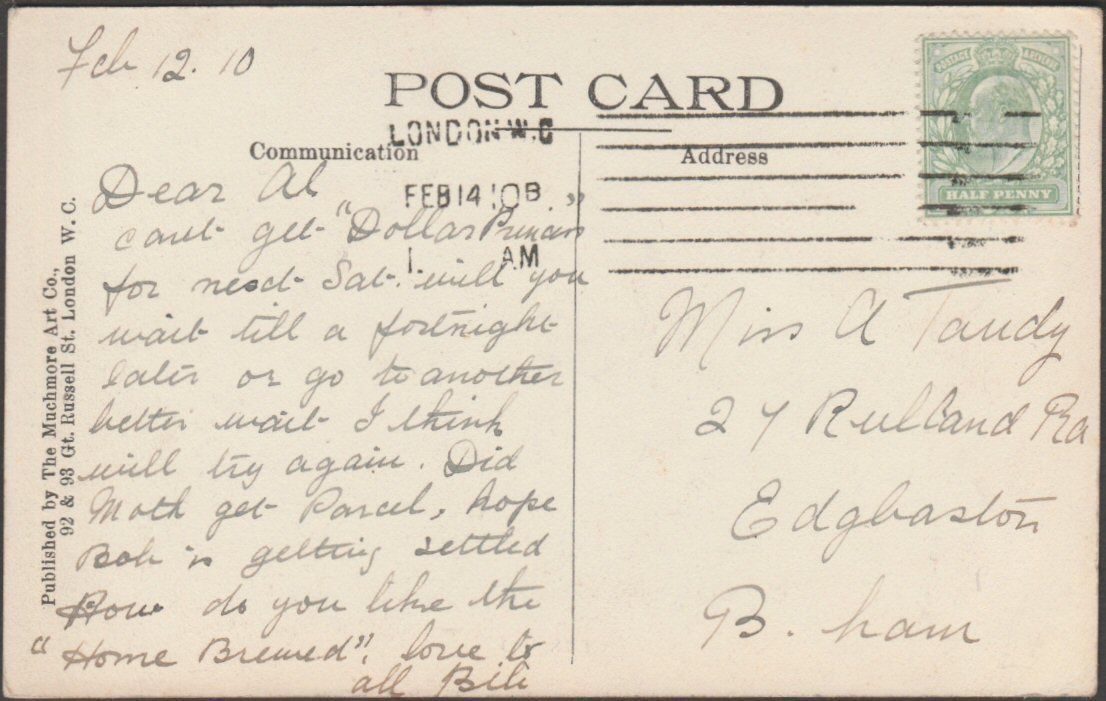 Feb 12. 10
POST CARD
LONDON W.C
FEB 14 10 B
1. AM
Communication
Address
POSTAGE REVENUE
HALF PENNY
Published by The Muchmore Art Co.,
92 & 93 Gt. Russell St. London W. C.
Dear Al
cant get "Dollar Princess"
for next Sat. will you
wait till a fortnight
later or go to another
better wait I think
will try again. Did
Moth get Parcel, hope
Bob is getting settled
How do you like the
"Home Brewed". love to
all Bill
Miss A Tandy
27 Rutland Rd
Edgbaston
B. ham